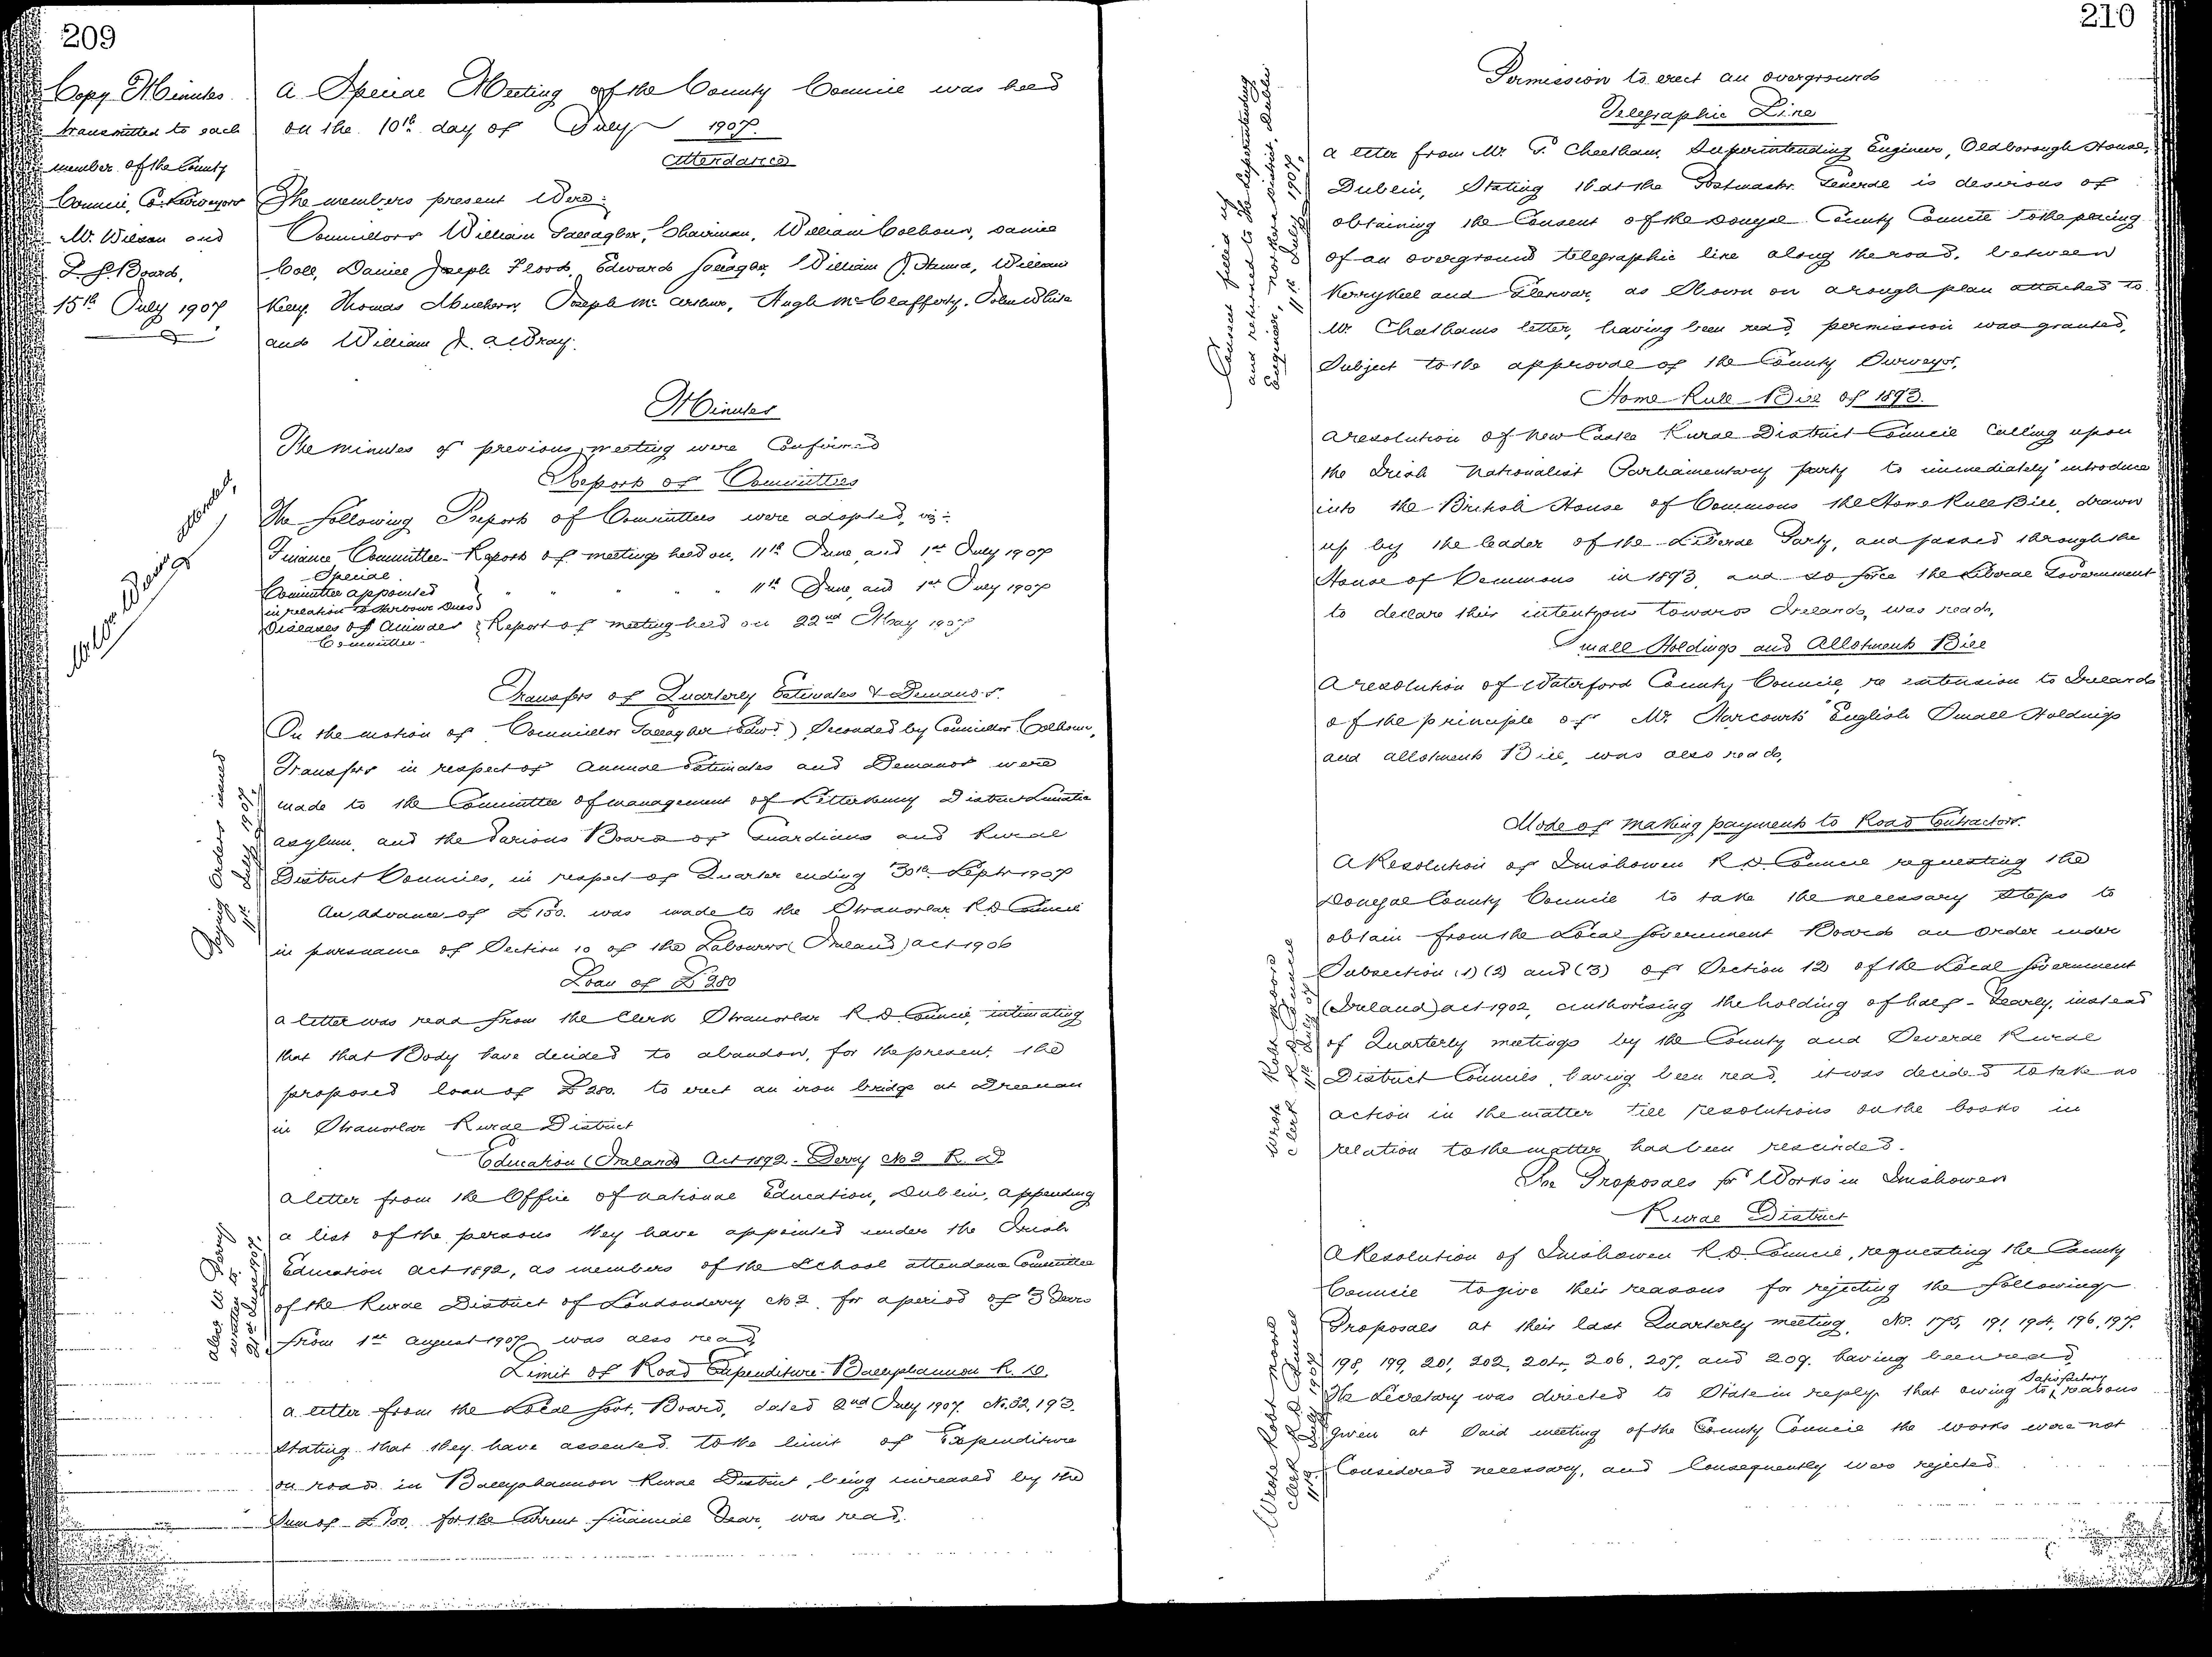 209
Copy Minutes
transmitted to each
member of the County
Council, Co. Surveyors
Mr. Wilson and
L. G. Board,
15th July 1907
A Special Meeting of the County Council was held
on the 10th day of July 1907.
Attendance
The members present were:
Councillors William Gallagher, Chairman, William Colhoun, Daniel
Coll, Daniel Joseph Flood, Edward Gallagher, William J. Hanna, William
Kelly, Thomas Mulhern, Joseph McArthur, Hugh McClafferty, John White
and William J. McBray.
Minutes
The minutes of previous meeting were Confirmed
Report of Committees
The following Report of Committees were adopted, viz:-
Finance Committee - Report of meetings held on, 11th June, and 1st July 1907
Special
Committee appointed " " " " 11th June, and 1st July 1907
in relation to Harbour Dues
Diseases of Animals Report of meeting held on 22nd May 1907
Committee
attended,
Transfers of Quarterly Estimates & Demands.
On the motion of Councillor Gallagher (Edwd) Seconded by Councillor Colhoun,
Transfers in respect of Annual Estimates and Demands were
made to the Committee of management of Letterkenny District Lunatic
Asylum, and the Various Boards of Guardians and Rural
District Councils, in respect of Quarter ending 30th Septr 1907
Paying Orders issued
11th July 1907.
An advance of £150. was made to the Stranorlar R D Council
in pursuance of Section 10 of the Labourers (Ireland) Act 1906
Loan of £280
A letter was read from the Clerk Stranorlar R. D. Council, intimating
that that Body have decided to abandon, for the present, the
proposed loan of £280. to erect an iron bridge at Dreenan
in Stranorlar Rural District
Education (Ireland) Act 1892 - Derry No 2 R. D.
A letter from the Office of National Education, Dublin, appending
a list of the persons they have appointed under the Irish
Education Act 1892, as members of the School attendance Committee
of the Rural District of Londonderry No 2, for a period of 3 Years
from 1st August 1907, was also read.
written to
Limit of Road Expenditure - Ballyshannon R. D.
A letter from the Local Govt. Board, dated 2nd July 1907. No. 32,193.
stating that they have assented to the limit of Expenditure
on roads in Ballyshannon Rural District, being increased by the
Sum of £100. for the Current financial Year, was read.
210
Permission to erect an overground
Telegraphic Line
A letter from Mr. T. Cheetham, Superintending Engineer, Aldborough House,
Dublin, Stating that the Postmaster General is desirous of
obtaining the Consent of the Donegal County Council to the placing
of an overground telegraphic line along the road, between
Kerrykeel and Glenvar, as Shown on a rough plan attached to
Mr. Cheethams letter, having been read, permission was granted,
Subject to the approval of the County Surveyor.
Consent filled up
and returned to the Superintending
Engineer, Northern District, Dublin
11th July 1907.
Home Rule Bill of 1893.
A resolution of New Castle Rural District Council Calling upon
the Irish Nationalist Parliamentary party to immediately introduce
into the British House of Commons the Home Rule Bill, drawn
up by the leader of the Liberal Party, and passed through the
House of Commons in 1893, and so force the Liberal Government
to declare their intentions towards Ireland, was read,
Small Holdings and Allotments Bill
A resolution of Waterford County Council, re extension to Ireland
of the principle of Mr. Harcourt's English Small Holdings
and allotments Bill, was also read,
Mode of making payments to Road Contractors.
A Resolution of Inishowen R. D. Council requesting the
Donegal County Council to take the necessary steps to
obtain from the Local Government Board an Order under
Subsection (1) (2) and (3) of Section 12 of the Local Government
(Ireland) Act 1902, authorising the holding of half-Yearly, instead
of Quarterly meetings by the County and Several Rural
District Councils, having been read, it was decided to take no
action in the matter till resolutions on the books in
relation to the matter had been rescinded.
Wrote Robt Moore
Clerk R D Council
11th July 07
Re Proposals for Works in Inishowen
Rural District
A Resolution of Inishowen R. D. Council, requesting the County
Council to give their reasons for rejecting the following
Proposals at their last Quarterly meeting, No. 175, 191, 194, 196, 197,
198, 199, 201, 202, 204, 206, 207, and 209. having been read,
The Secretary was directed to State in reply that owing to satisfactory reasons
given at Said meeting of the County Council the works were not
Considered necessary, and Consequently were rejected.
Wrote Robt Moore
Clerk R D Council
11th July 1907